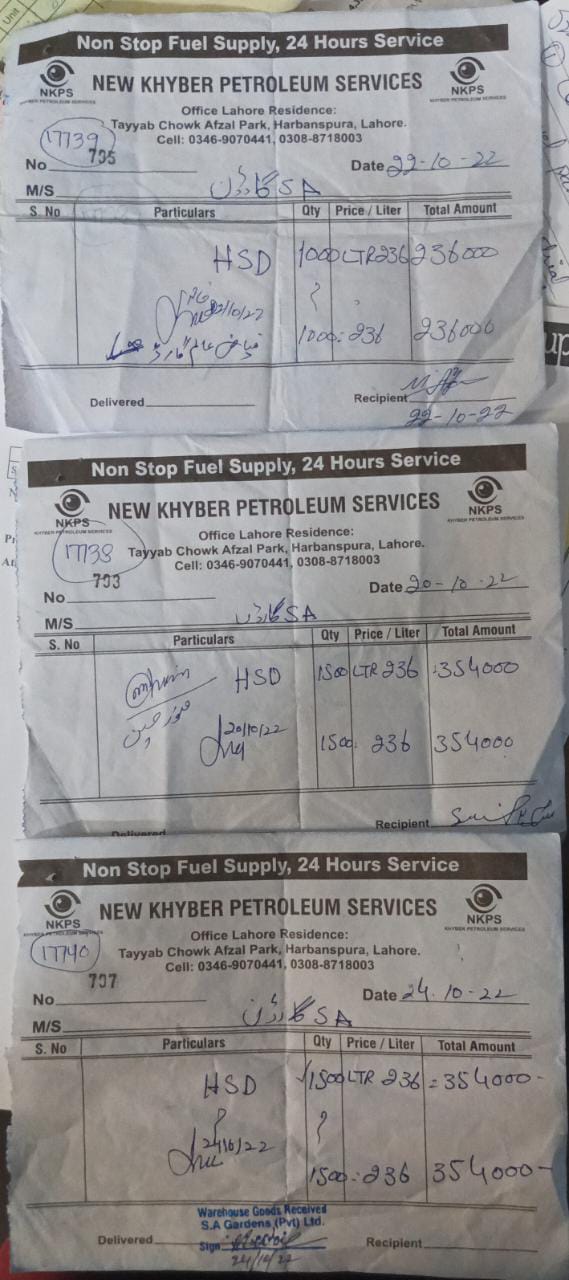 Non Stop Fuel Supply, 24 Hours Service
NKPS
KHYBER PETROLEUM SERVICES
NEW KHYBER PETROLEUM SERVICES
NKPS
KHYBER PETROLEUM SERVICES
Office Lahore Residence:
Tayyab Chowk Afzal Park, Harbanspura, Lahore.
Cell: 0346-9070441, 0308-8718003
17739
No 795
Date 22-10-22
M/S SA گارڈن
S. No Particulars Qty Price / Liter Total Amount
HSD 1000 LTR 236 236000
22/10/22
1000: 236 236000
Delivered
Recipient
22-10-22
Non Stop Fuel Supply, 24 Hours Service
NKPS
KHYBER PETROLEUM SERVICES
NEW KHYBER PETROLEUM SERVICES
NKPS
KHYBER PETROLEUM SERVICES
Office Lahore Residence:
Tayyab Chowk Afzal Park, Harbanspura, Lahore.
Cell: 0346-9070441, 0308-8718003
17738
No 793
Date 20-10-22
M/S SA گارڈن
S. No Particulars Qty Price / Liter Total Amount
HSD 1500 LTR 236 :354000
20/10/22
1500: 236 354000
Delivered
Recipient
Non Stop Fuel Supply, 24 Hours Service
NKPS
KHYBER PETROLEUM SERVICES
NEW KHYBER PETROLEUM SERVICES
NKPS
KHYBER PETROLEUM SERVICES
Office Lahore Residence:
Tayyab Chowk Afzal Park, Harbanspura, Lahore.
Cell: 0346-9070441, 0308-8718003
17740
No 797
Date 24.10-22
M/S SA گارڈن
S. No Particulars Qty Price / Liter Total Amount
HSD 1500 LTR 236 = 354000-
24/10/22
1500:236 354000-
Warehouse Goods Received
S.A Gardens (Pvt) Ltd.
Delivered Sign
Recipient
24/10/22